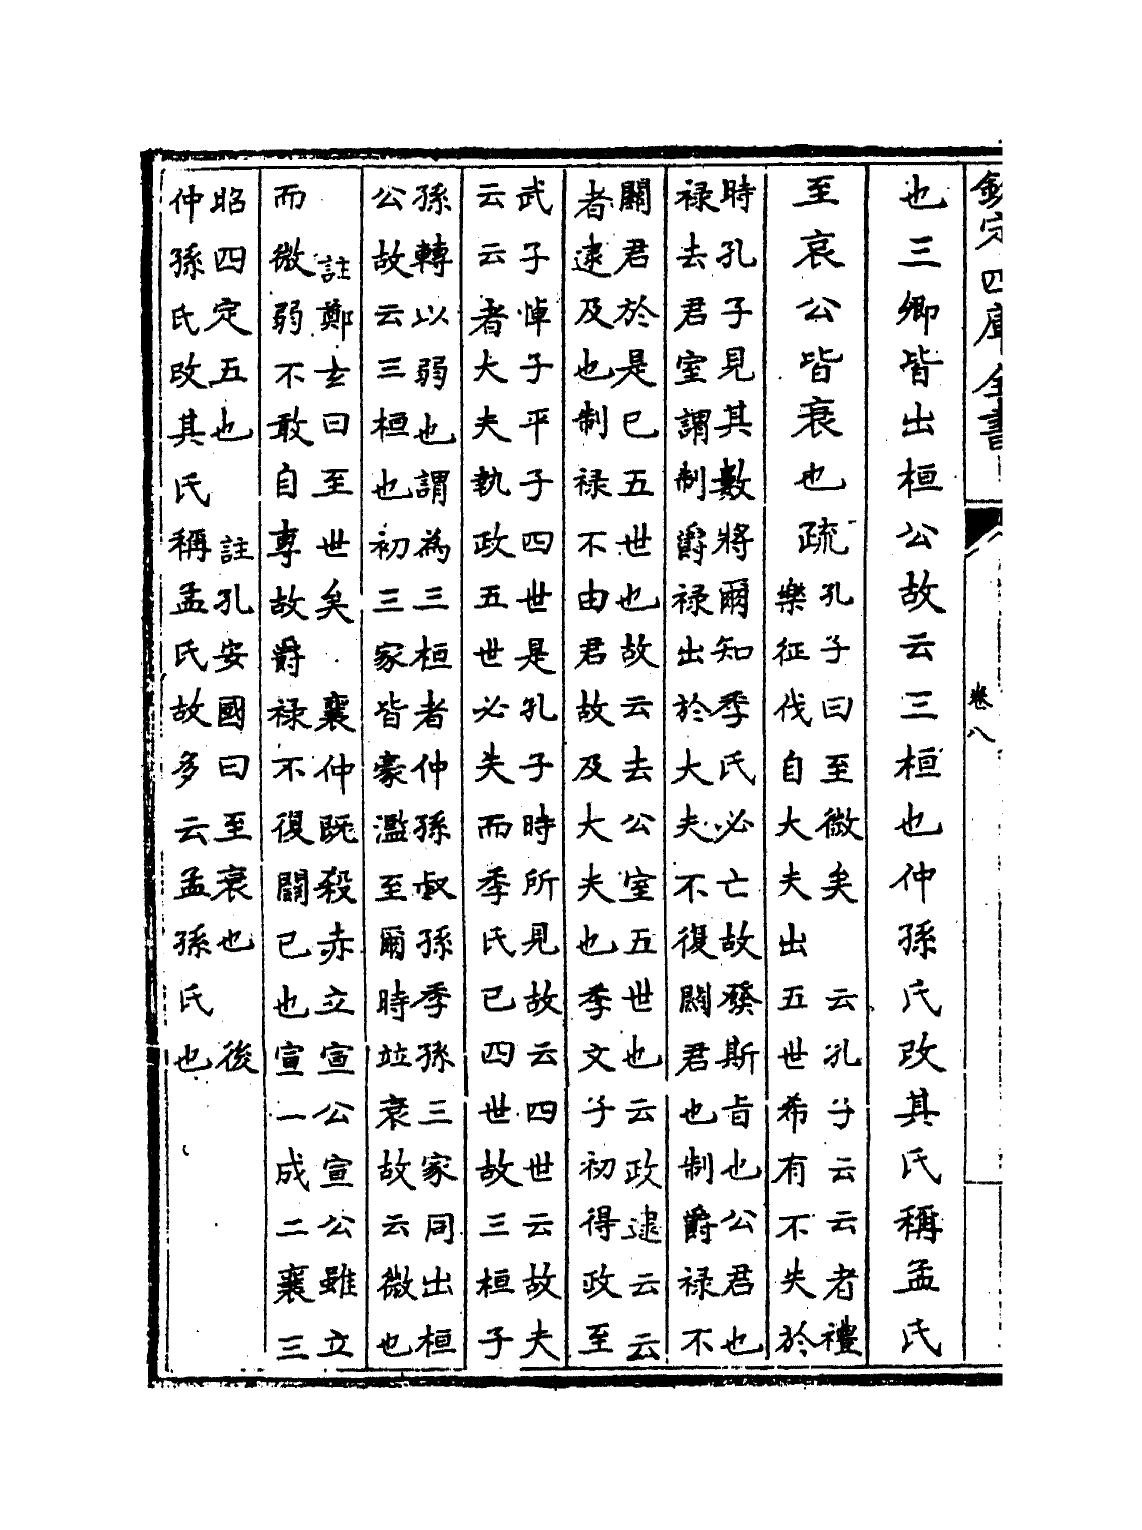 欽定四庫全書
卷八
也三卿皆出桓公故云三桓也仲孫氏改其氏稱孟氏
至哀公皆衰也疏
孔子曰至微矣　云孔子云云者禮
樂征伐自大夫出五世希有不失於
時孔子見其數將爾知季氏必亡故發斯旨也公君也
祿去君室謂制爵祿出於大夫不復關君也制爵祿不
關君於是已五世也故云去公室五世也云政逮云云
者逮及也制祿不由君故及大夫也季文子初得政至
武子悼子平子四世是孔子時所見故云四世云故夫
云云者大夫執政五世必失而季氏已四世故三桓子
孫轉以弱也謂為三桓者仲孫叔孫季孫三家同出桓
公故云三桓也初三家皆豪濫至爾時並衰故云微也
註鄭玄曰至世矣　襄仲既殺赤立宣公宣公雖立
而微弱不敢自專故爵祿不復關已也宣一成二襄三
昭四定五也　註孔安國曰至衰也　後
仲孫氏改其氏稱孟氏故多云孟孫氏也